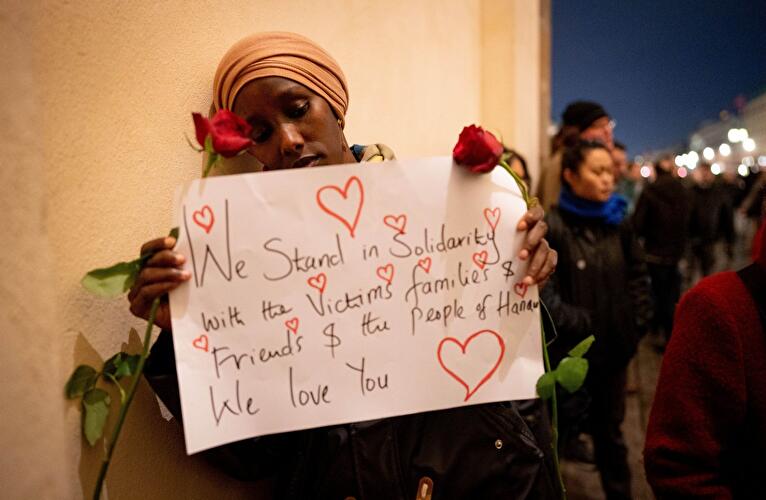 We Stand in Solidarity
with the Victims families &
Friends & the People of Hanau
We love You